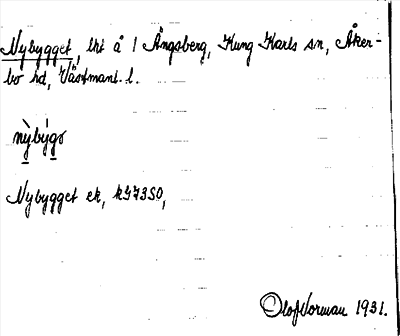 Nybygget, lht å 1 Ängsberg, Kung Karls sn, Åker-
bo hd, Västmanl. l.
nỳbýgə
Nybygget ek, k973SO,
Olof Norman 1931.